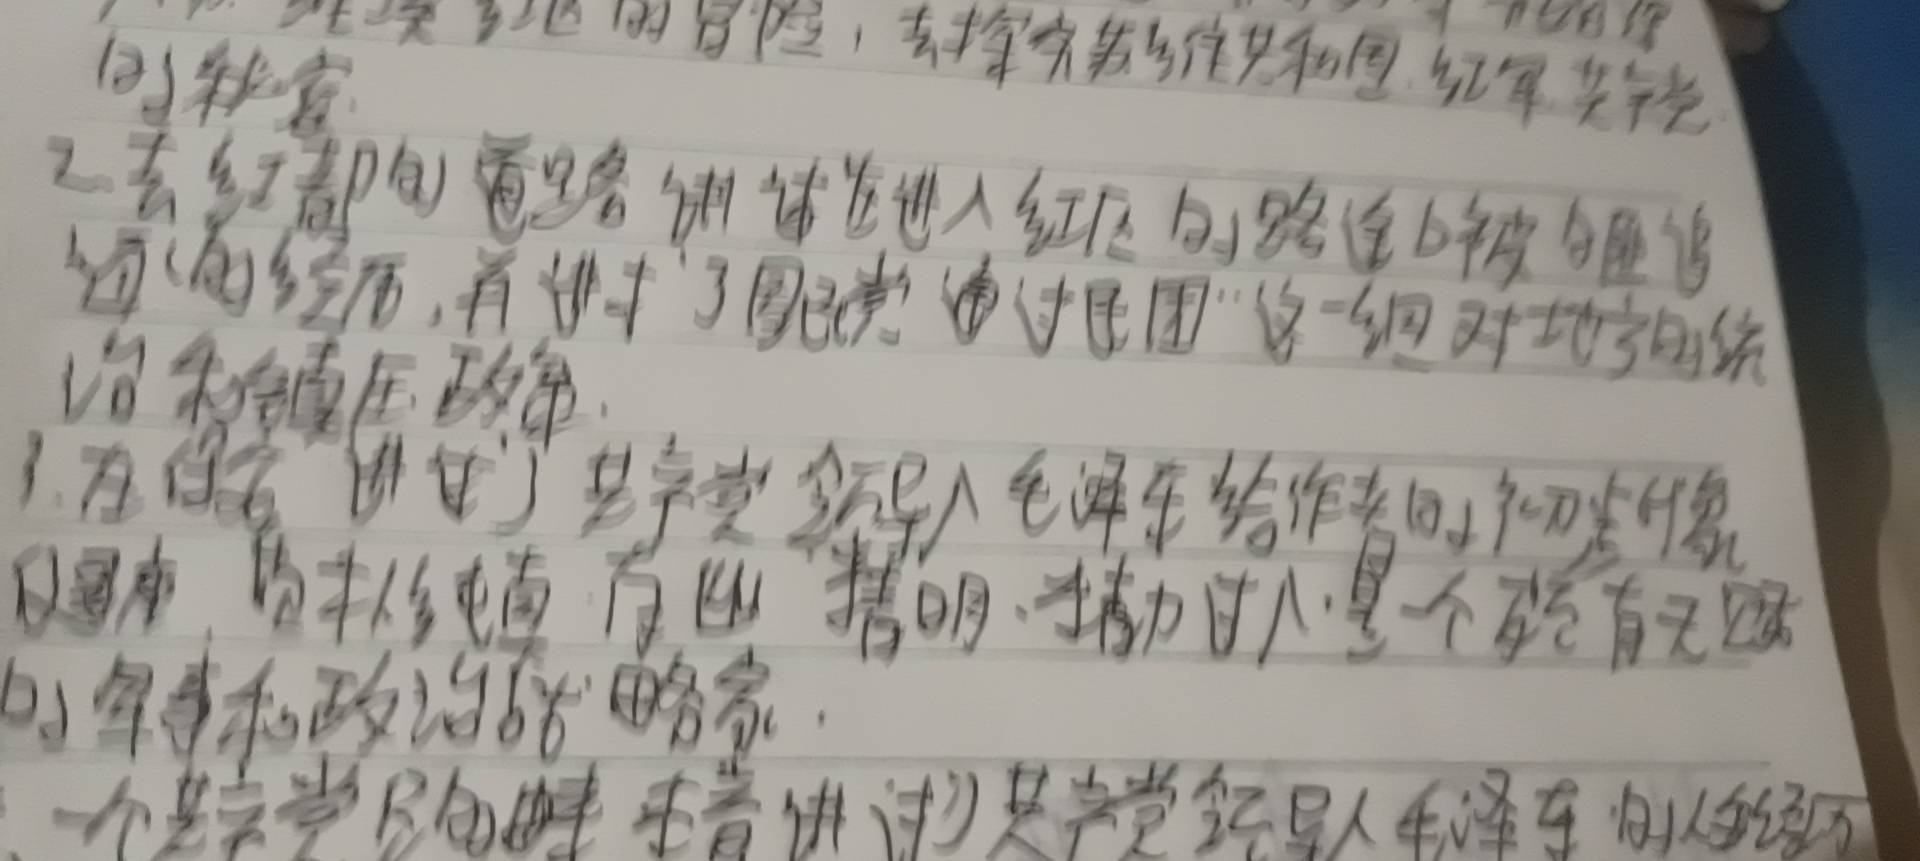 的冒险,去探究苏维埃共和国.红军.共产党
的秘密.
2.去红都的道路 讲述在进入红区的路途中被白匪追
的经历,并讲了国民党通过民团"这一组对地方的统
治和镇压政策.
3.在保安 讲了共产党领导人毛泽东给作者的初步印象
精明.精力过人.是一个有天
的军事和政治战略家.
一个共产党员的由来 着讲述了共产党领导人毛泽东的经历